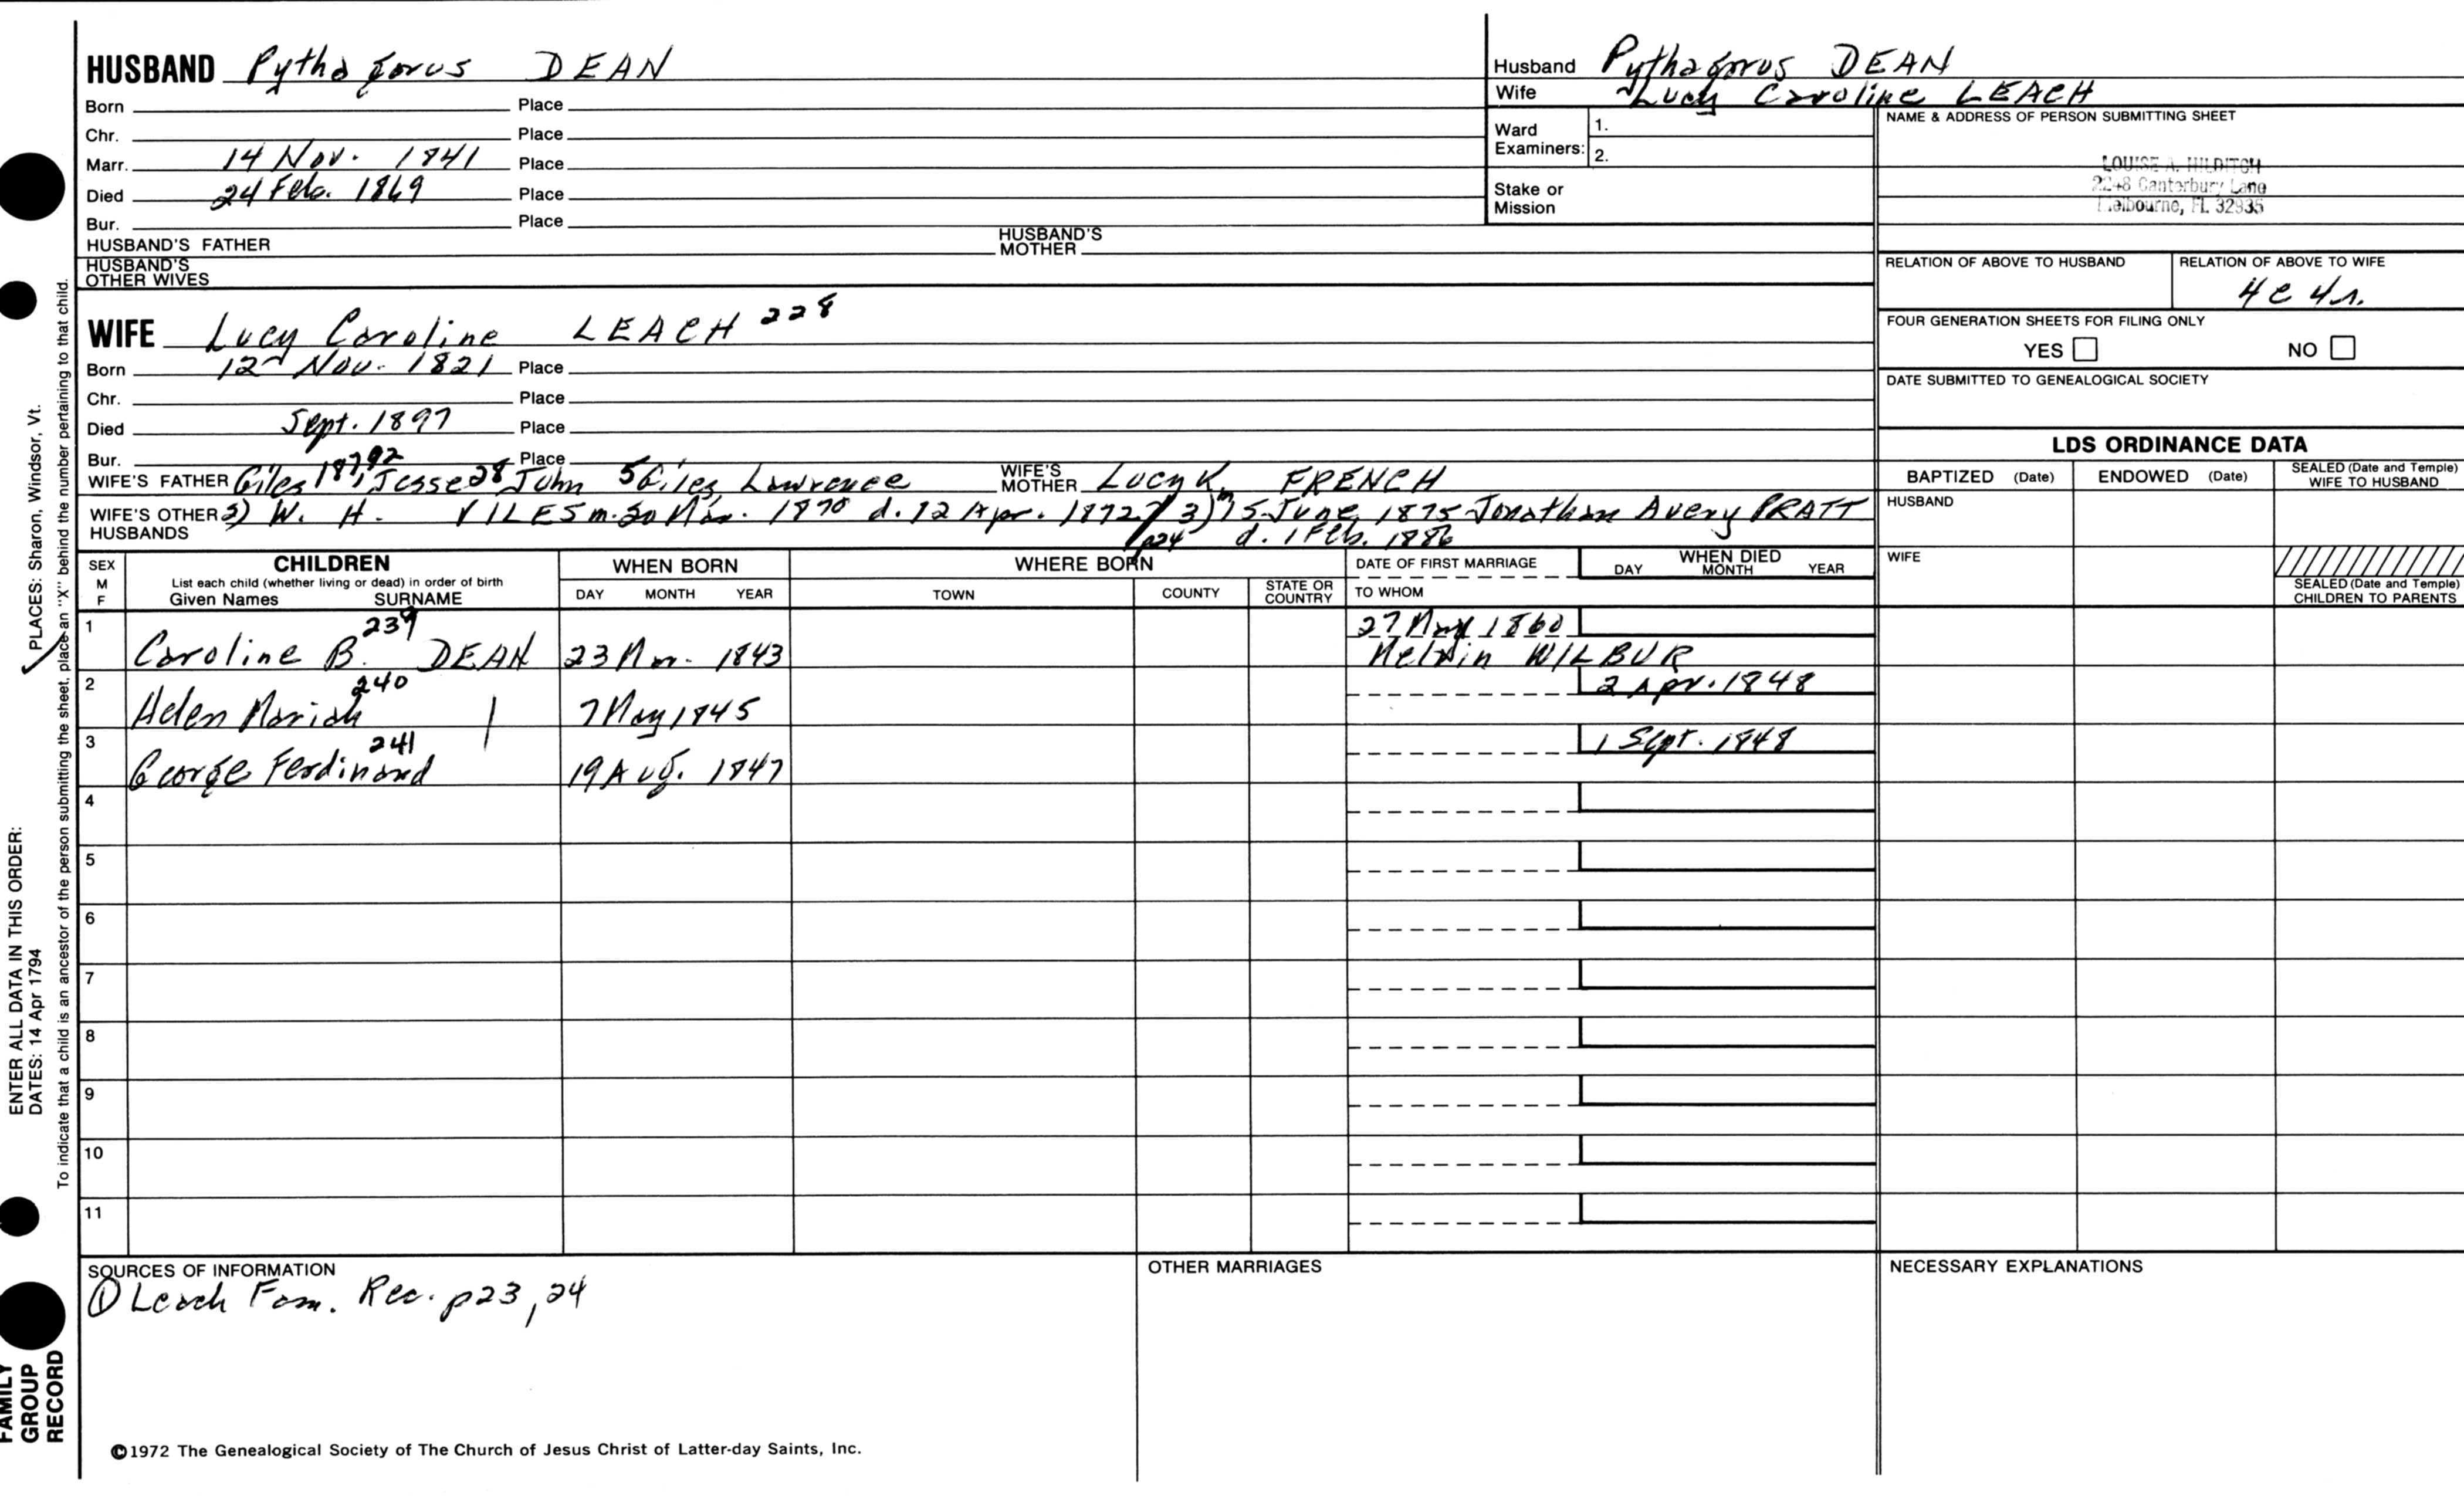 HUSBAND Pythagorus DEAN
Born Place
Chr. Place
Marr. 14 Nov. 1841 Place
Died 24 Feb. 1869 Place
Bur. Place
HUSBAND'S FATHER HUSBAND'S MOTHER
HUSBAND'S OTHER WIVES
Husband Pythagorus DEAN
Wife Lucy Caroline LEACH
Ward Examiners: 1.
2.
Stake or Mission
NAME & ADDRESS OF PERSON SUBMITTING SHEET
LOUISE A. HILDITCH
2248 Canterbury Lane
Melbourne, FL 32935
RELATION OF ABOVE TO HUSBAND RELATION OF ABOVE TO WIFE
4c 4r.
FOUR GENERATION SHEETS FOR FILING ONLY
YES NO
DATE SUBMITTED TO GENEALOGICAL SOCIETY
WIFE Lucy Caroline LEACH 228
Born 12 Nov. 1821 Place
Chr. Place
Died Sept. 1897 Place
Bur. Place
WIFE'S FATHER Giles Jesse 28 John 5 Giles, Lawrence WIFE'S MOTHER Lucy K. FRENCH
WIFE'S OTHER HUSBANDS 2) W. H. VILES m. 30 1870 d. 12 Apr. 1872 / 3) m 15 June, 1875 Jonathan Avery PRATT
p24 d. 1 Feb. 1886
LDS ORDINANCE DATA
BAPTIZED (Date) ENDOWED (Date) SEALED (Date and Temple) WIFE TO HUSBAND
HUSBAND
WIFE
SEALED (Date and Temple) CHILDREN TO PARENTS
SEX M F CHILDREN List each child (whether living or dead) in order of birth Given Names SURNAME WHEN BORN DAY MONTH YEAR WHERE BORN TOWN COUNTY STATE OR COUNTRY DATE OF FIRST MARRIAGE TO WHOM WHEN DIED DAY MONTH YEAR
1 239 27 1860
Caroline B. DEAN 23 1843 Melvin WILBUR
2 240 2 Apr. 1848
Helen Mariah 7 May 1845
3 241 1 Sept. 1848
George Ferdinand 19 Aug. 1847
4
5
6
7
8
9
10
11
SOURCES OF INFORMATION OTHER MARRIAGES NECESSARY EXPLANATIONS
① Leach Fam. Rec. p23, 24
©1972 The Genealogical Society of The Church of Jesus Christ of Latter-day Saints, Inc.
ENTER ALL DATA IN THIS ORDER:
DATES: 14 Apr 1794 PLACES: Sharon, Windsor, Vt.
To indicate that a child is an ancestor of the person submitting the sheet, place an "X" behind the number pertaining to that child.
FAMILY
GROUP
RECORD